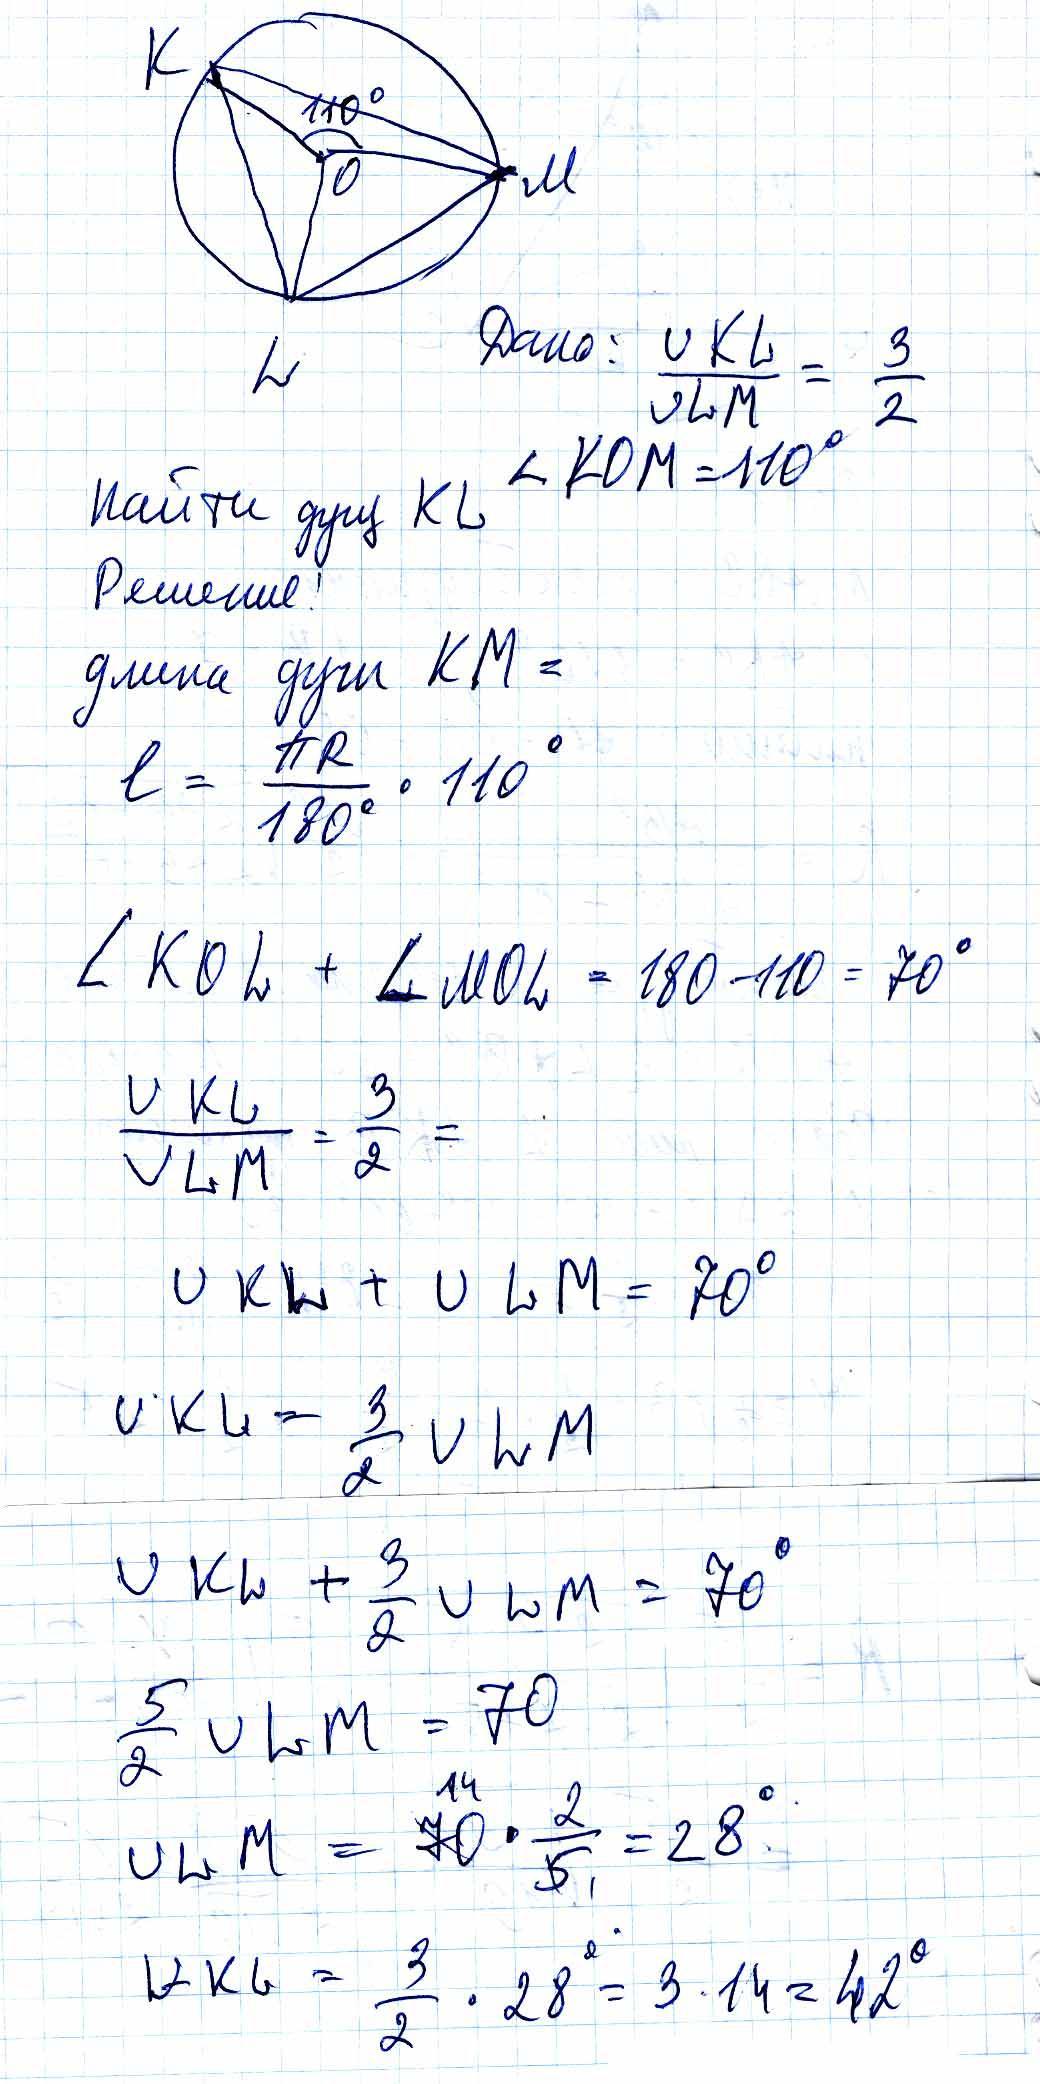 K
110°
O
M
L
Дано: ∪KL / ∪LM = 3/2
∠KOM = 110°
Найти дугу KL
Решение:
длина дуги KM =
l = πR/180° · 110°
∠KOL + ∠MOL = 180 - 110 = 70°
∪KL / ∪LM = 3/2 =
∪KL + ∪LM = 70°
∪KL = 3/2 ∪LM
∪KL + 3/2 ∪LM = 70°
5/2 ∪LM = 70
14
∪LM = 70 · 2/5 = 28°
1
∪KL = 3/2 · 28° = 3 · 14 = 42°